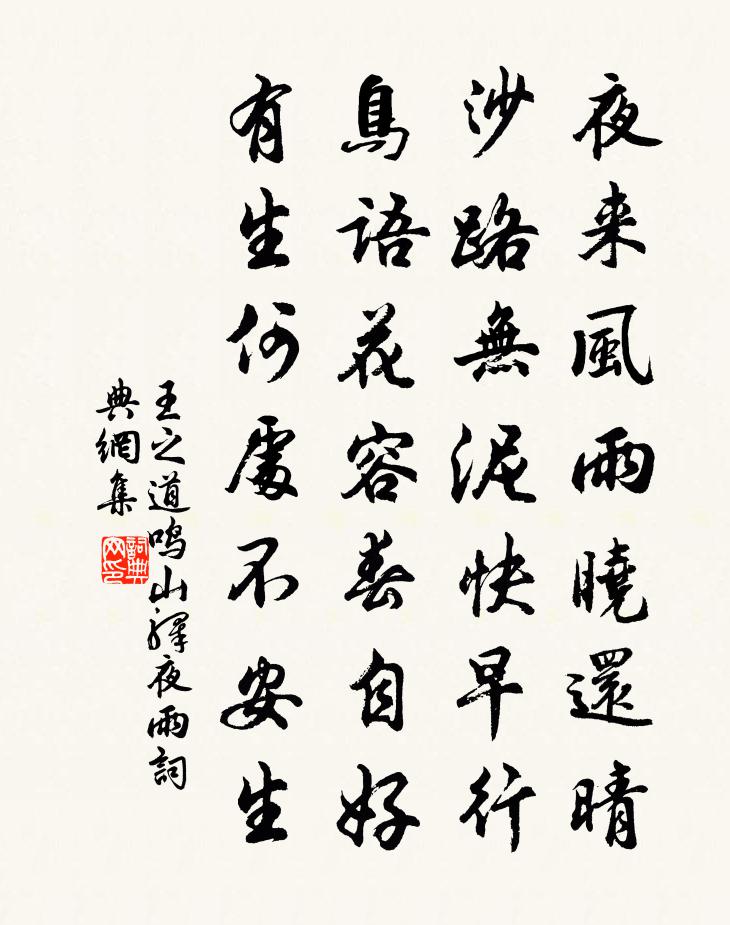 夜来風雨曉還晴
沙路無泥快早行
鳥語花容春自好
有生何處不安生
王之道鸣山驛夜雨詞
典網集
詞典
网印